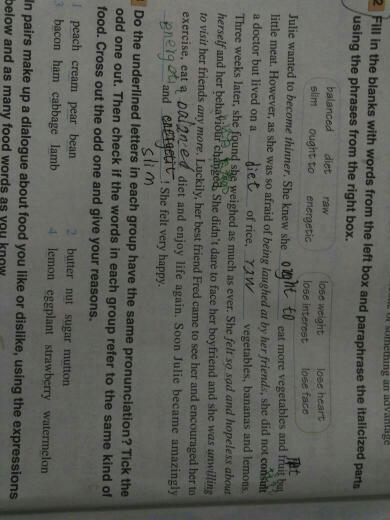 of something an advantage
2 Fill in the blanks with words from the left box and paraphrase the italicized parts
using the phrases from the right box.
balanced diet raw
slim ought to energetic
lose weight lose heart
lose interest lose face
Julie wanted to become thinner. She knew she ought to eat more vegetables and fruit but
little meat. However, as she was so afraid of being laughed at by her friends, she did not consult
a doctor but lived on a diet of rice, raw vegetables, bananas and lemons.
Three weeks later, she found she weighed as much as ever. She felt so sad and hopeless about
herself and her behaviour changed. She didn't dare to face her boyfriend and she was unwilling
to visit her friends any more. Luckily, her best friend Fred came to see her and encouraged her to
exercise, eat a balanced diet and enjoy life again. Soon Julie became amazingly
energetic and slim. She felt very happy.
Do the underlined letters in each group have the same pronunciation? Tick the
odd one out. Then check if the words in each group refer to the same kind of
food. Cross out the odd one and give your reasons.
1 peach cream pear bean
2 butter nut sugar mutton
3 bacon ham cabbage lamb
4 lemon eggplant strawberry watermelon
In pairs make up a dialogue about food you like or dislike, using the expressions
below and as many food words as you know.